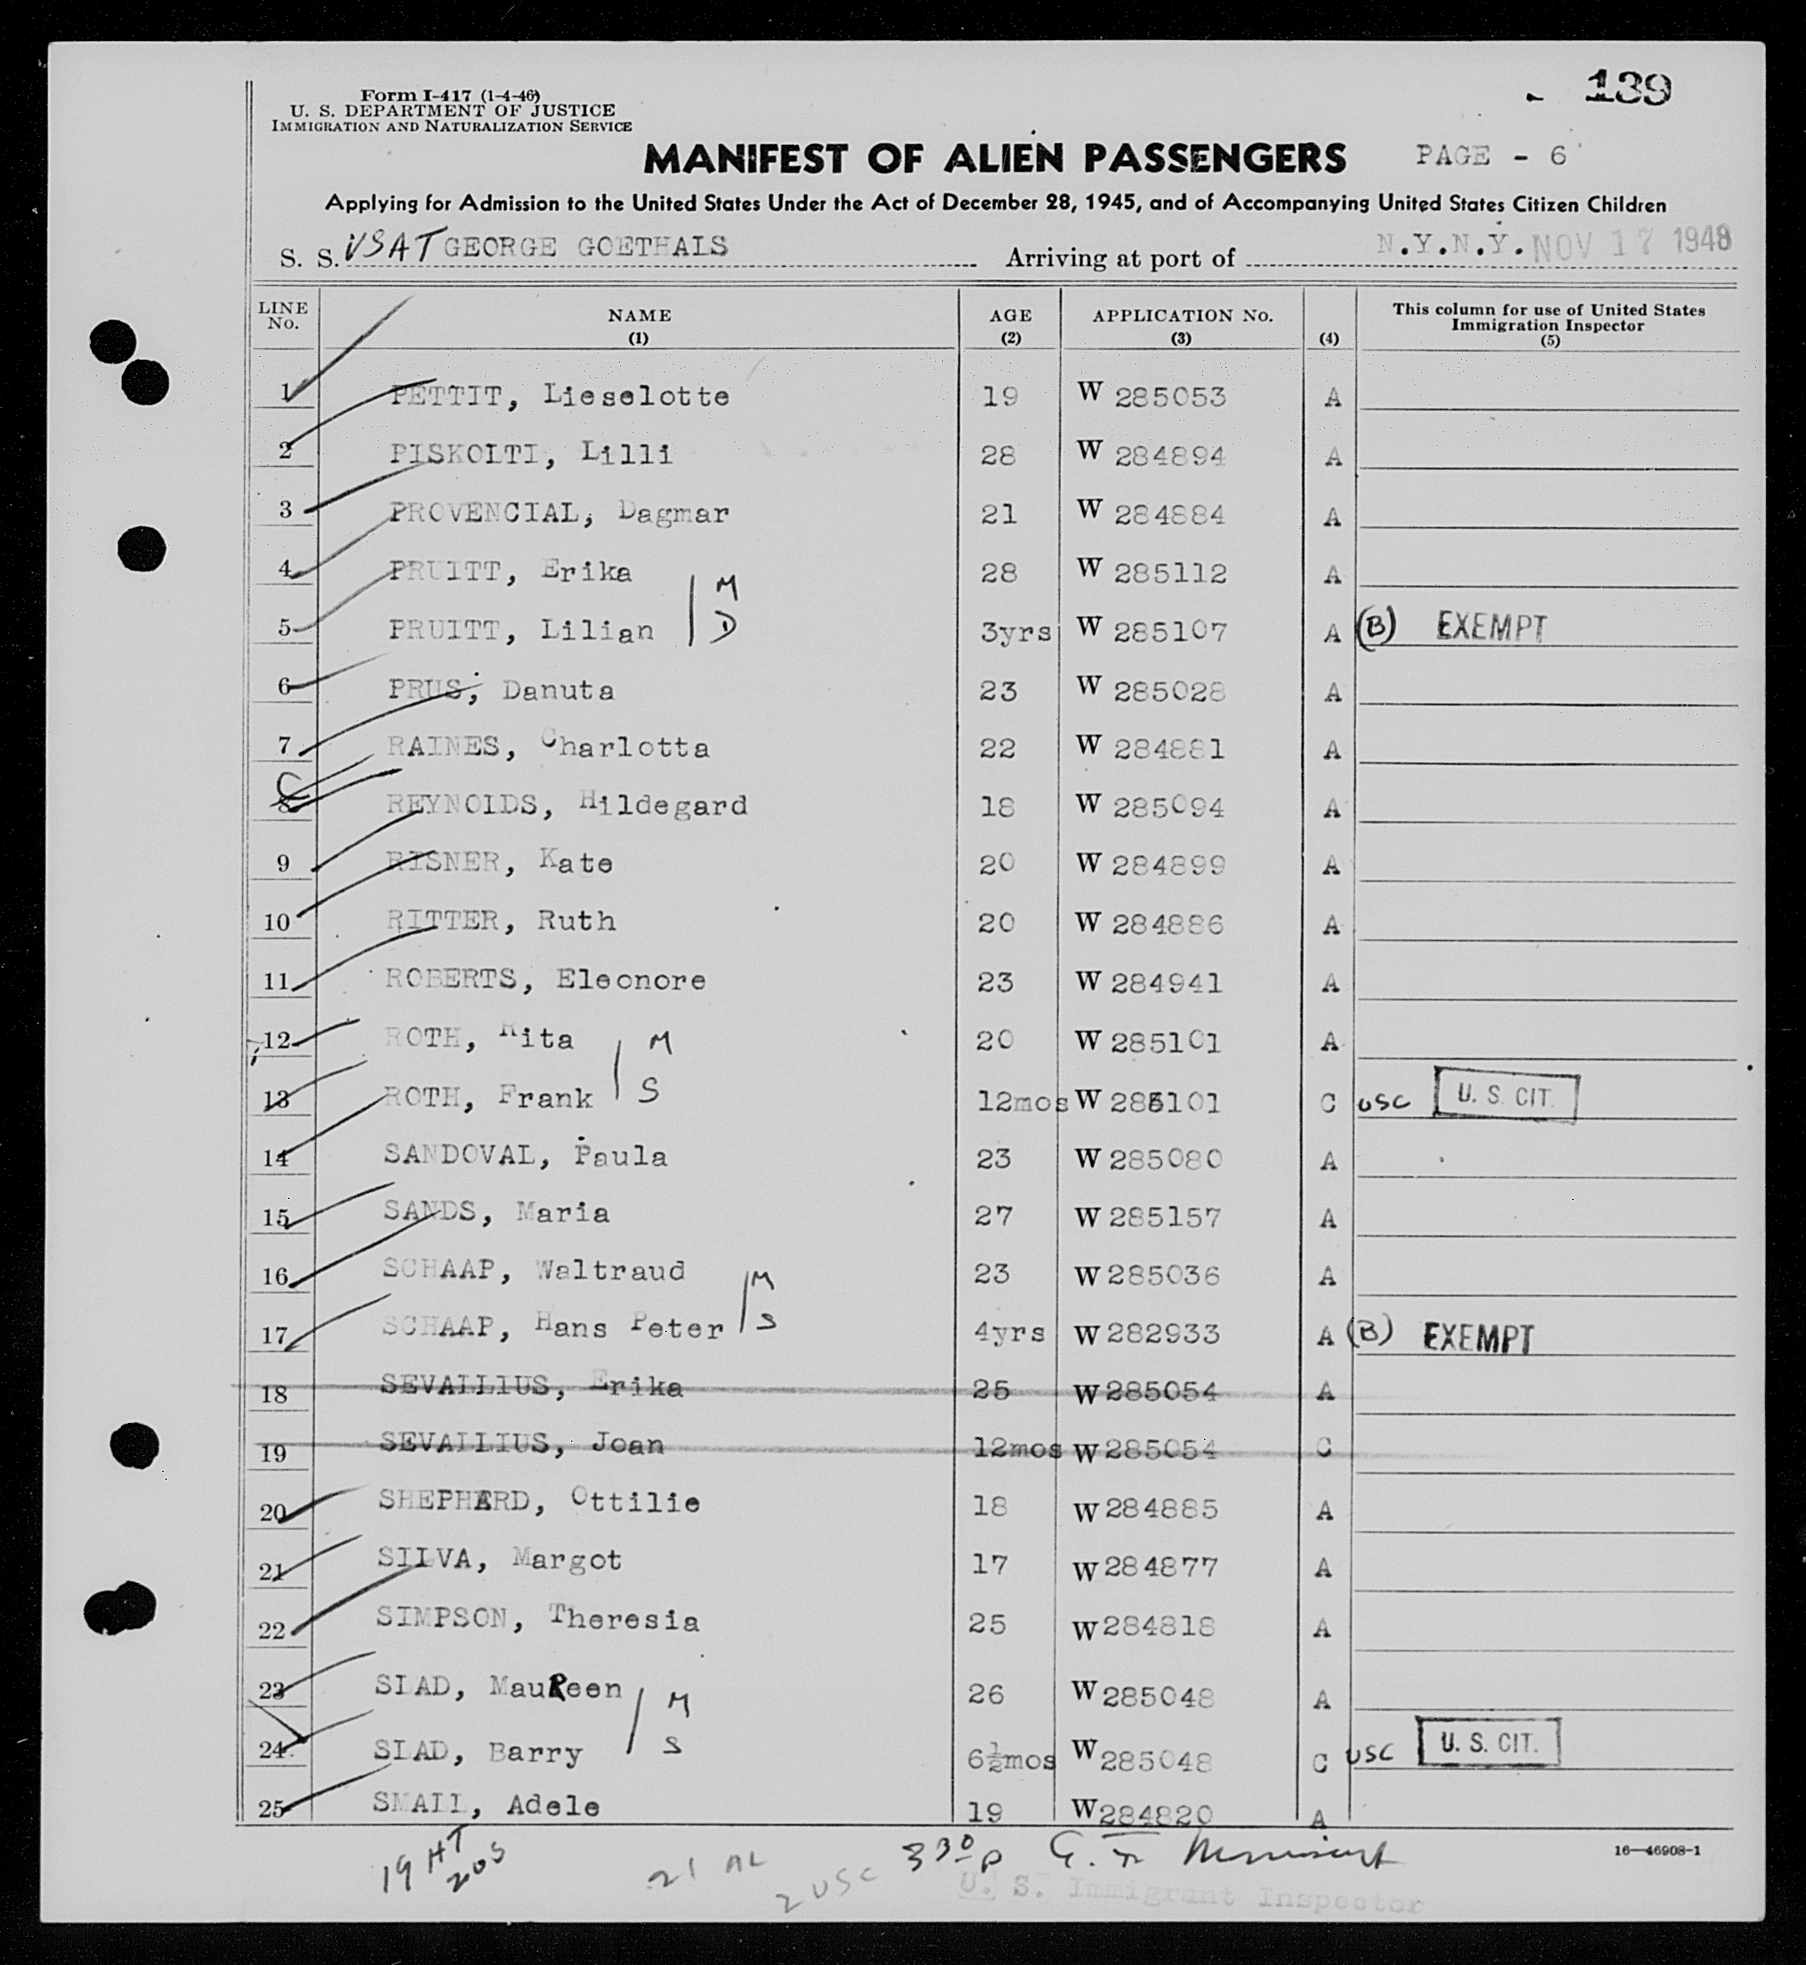 139
Form I-417 (1-4-46)
U. S. DEPARTMENT OF JUSTICE
IMMIGRATION AND NATURALIZATION SERVICE
MANIFEST OF ALIEN PASSENGERS PAGE - 6
Applying for Admission to the United States Under the Act of December 28, 1945, and of Accompanying United States Citizen Children
S. S. USAT GEORGE GOETHALS Arriving at port of N.Y.N.Y. NOV 17 1948
LINE No. NAME (1) AGE (2) APPLICATION No. (3) (4) This column for use of United States Immigration Inspector (5)
1 PETTIT, Lieselotte 19 W 285053 A
2 PISKOLTI, Lilli 28 W 284894 A
3 PROVENCIAL, Dagmar 21 W 284884 A
4 PRUITT, Erika M 28 W 285112 A
5 PRUITT, Lilian D 3yrs W 285107 A (B) EXEMPT
6 PRUS, Danuta 23 W 285028 A
7 RAINES, Charlotta 22 W 284881 A
C
8 REYNOLDS, Hildegard 18 W 285094 A
9 RISNER, Kate 20 W 284899 A
10 RITTER, Ruth 20 W 284886 A
11 ROBERTS, Eleonore 23 W 284941 A
12 ROTH, Rita M 20 W 285101 A
13 ROTH, Frank S 12mos W 285101 C USC U. S. CIT.
14 SANDOVAL, Paula 23 W 285080 A
15 SANDS, Maria 27 W 285157 A
16 SCHAAP, Waltraud M 23 W 285036 A
17 SCHAAP, Hans Peter S 4yrs W 282933 A (B) EXEMPT
18 SEVALLIUS, Erika 25 W 285054 A
19 SEVALLIUS, Joan 12mos W 285054 C
20 SHEPHARD, Ottilie 18 W 284885 A
21 SILVA, Margot 17 W 284877 A
22 SIMPSON, Theresia 25 W 284818 A
23 SLAD, MauReen M 26 W 285048 A
24 SLAD, Barry S 6½mos W 285048 C USC U. S. CIT.
25 SMALL, Adele 19 W 284820 A
19 HT
20S
21 AL
2 USC
3 30 P
U. S. Immigrant Inspector
16—46908-1